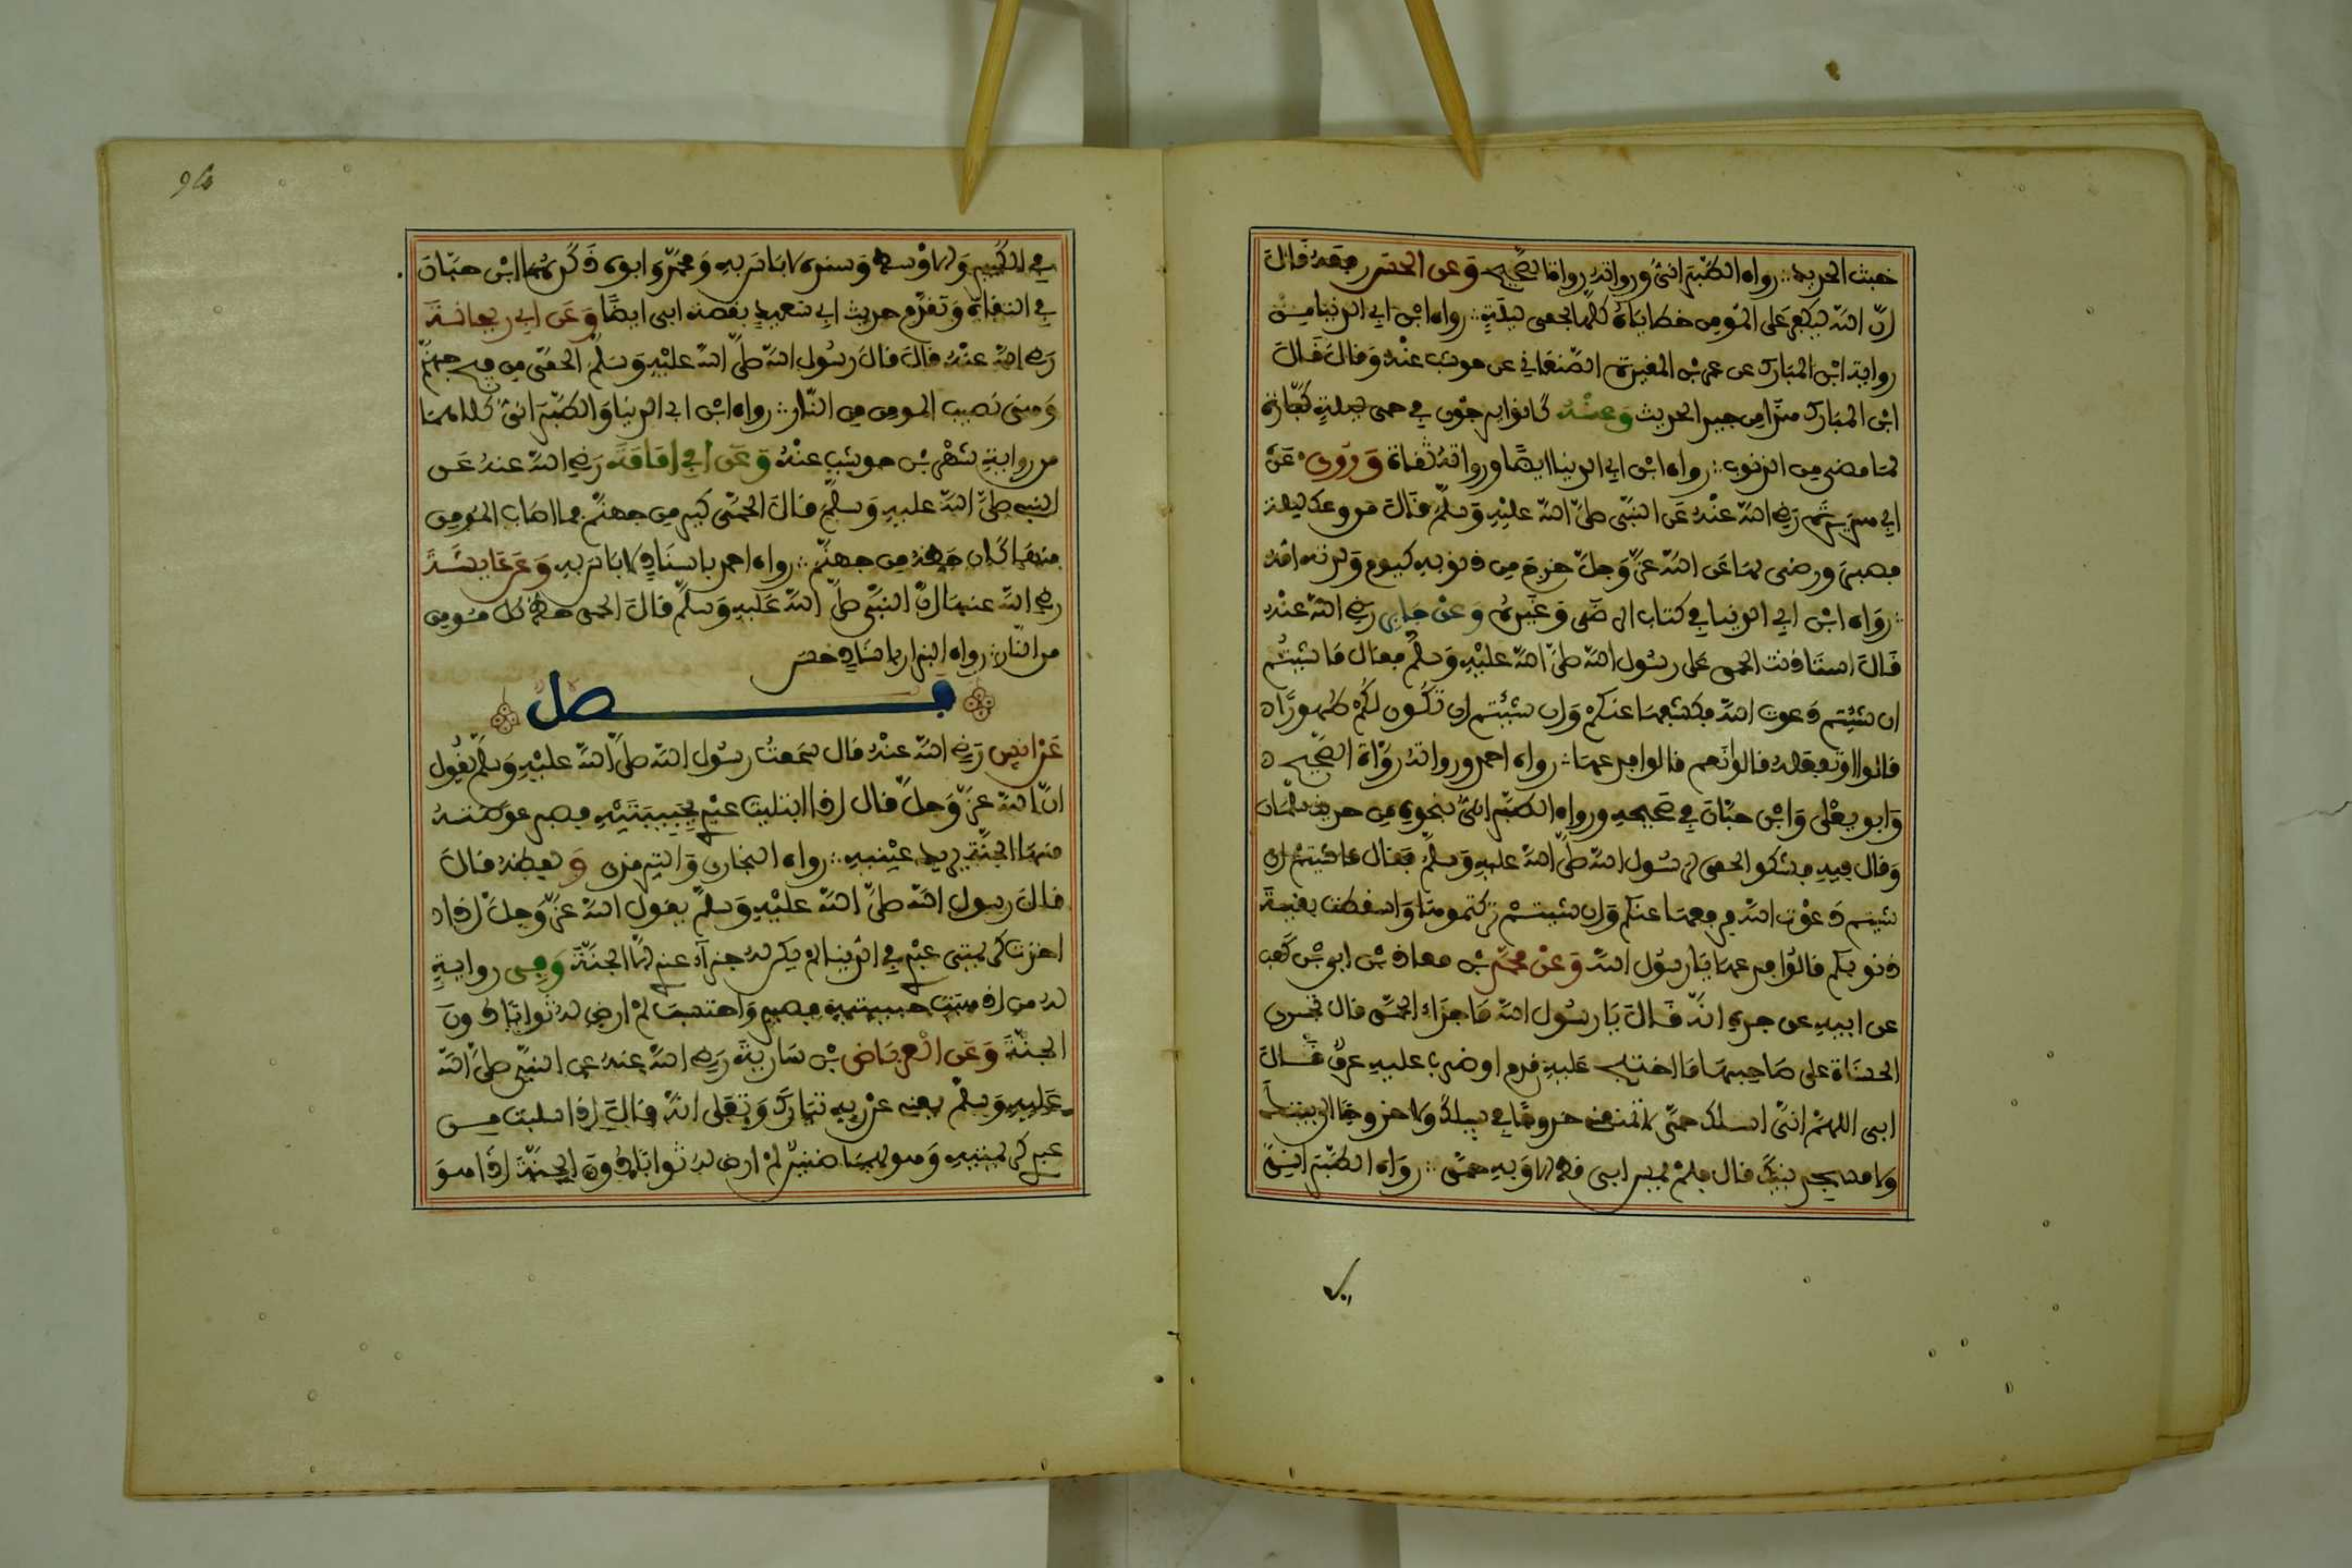 خبث الحديد ∴ رواه الطبراني ورواته رواة الصحيح وَعن الحسن رفعه قَالَ
إنّ الله ليكفر عَلى المؤمن خطاياهُ كلّها بحمى ليلة ∴ رواه ابن ابي الدنيا من
رواية ابن المبارك عن عمر بن المغيرة الصّنعاني عن حوشب عنْه وَقال قَالَ
ابن المبارك هذا من جيد الحديث وَعنْهُ كَانوا يرجون في حمى ليلة كفّارة
لما مضى من الذنوب ∴ رواه ابن ابي الدنيا ايضًا ورواته ثقاة وَرُوِيَ عَنْ
ابي هريرة رَضي الله عنْهُ عَن النبّي صلّى الله عليْهِ وَسلّم قَالَ من وعك ليلة
فصبر ورضى بها عَن الله عزّ وَجلّ خرج من ذنوبه كيوم وَلدته امه
∴ رَواه ابن ابي الدنيا في كتاب الرضَى وَغَيره وَعنْ جَابر رَضي الله عنْهُ
قَالَ استأذنت الحمى عَلى رسُول الله صلّى الله عليْهِ وَسلّم فقال مَا شيتُم
ان شئتم دَعوت الله فكشفها عنكمْ وَان شئتم ان تكُون لكُمْ طهورًا
قالوا اوَتفعله قال نعم قالوا فدعها ∴ رواه احمد ورواته رُواة الصّحيح
وَابو يعْلى وَابن حبّانَ في صَحيحهِ ورواه الطبراني بنحوه من حديث سلمان
وَقال فيه فشكو الحمى لرسُول الله صلّى الله عليهِ وَسلّم فقال ما شيتم ان
شيتم دَعوْت الله فدفعها عنكم وَان شيتم تركتموها وَاسقطت بقية
ذنوبكم قالوُا فدعها يَا رسُول الله وَعنْ محمّد بن معاذ بن ابي بن كَعب
عن ابيهِ عن جده انّه قَالَ يَا رسُول الله مَا جزاء الحمّى قال تجري
الحسنَاة على صَاحبهَا مَا اختلج عَليهِ قدم او ضرب عليهِ عرقٌ قَالَ
ابي اللهمّ انّي اسلك حمّى لا تمنعني خروجًا في سبيلك وَلا خروجًا الى بيتك
وَلا مسجد نبيّك قال فلمْ يمس ابي قط الا وَبهِ حمّى ∴ رَواه الطبّراني
في الكبير وَالاوْسط وَسنده لا باس بهِ وَمحمّد وابوه ذَكَرهما ابن حبّان
في الثقاة وَتقدّم حديث ابي سعيد بقصة ابي ايضًا وَعَن ابي ريحانة
رَضي الله عنْهُ قالَ قالَ رَسُول الله صلّى الله عليْهِ وَسَلّم الحمّى من فيح جهنّم
وَهي نصيب المومن من النّار ∴ رواه ابن ابي الدنيا وَالطبّراني كلاهما
من رواية شهْر بن حوشب عنْهُ وَعَن ابي امَامَة رَضي الله عنه عَن
النبي صلّى الله عليهِ وَسلّم قالَ الحمّى كير من جهنّم فما اصَاب المُومن
منها كان حَظه من جهنّم ∴ رواه احمد باسنَاد لا باس بهِ وَعَن عَايشة
رضي الله عنها انّ النبّي صلّى الله عَليهِ وَسلّم قالَ الحمى حظ كل مُومن
من النّار ∴ رواه البزار باسناد حسَن
فصل
عَنْ انَس رَضي الله عنْهُ قال سَمعتُ رسُول الله صلّى الله عليْهِ وَسلّم يَقُول
انّ الله عزّ وَجلّ قال اذا ابتليت عبْدي بحَبيبتَيْهِ فصبر عوضته
منهما الجنّة يريد عيْنيهِ ∴ رواه البخاري وَالترمذي وَلفظه قالَ
قالَ رَسول الله صلّى الله عليْهِ وَسلّم يقول الله عزّ وَجلّ اذا
اخذت كريمتي عبْدي في الدنيا لم يكن له جزآء عندي الّا الجنّة وَفي رواية
له من اذهبت حبيبتيه فصبر وَاحتسب لمْ ارض له ثوابًا دُون
الجنّة وَعَن العرباض بْن سَارية رَضي الله عنهُ عن النبّي صلّى الله
عَليهِ وَسلّم يعني عن ربه تبارَك وَتعَلى انّه قالَ اذا سلبت من
عبدي كريمتيه وَهو بهما ضنين لمْ ارض له ثوابًا دُون الجنّة اذَا هوَ